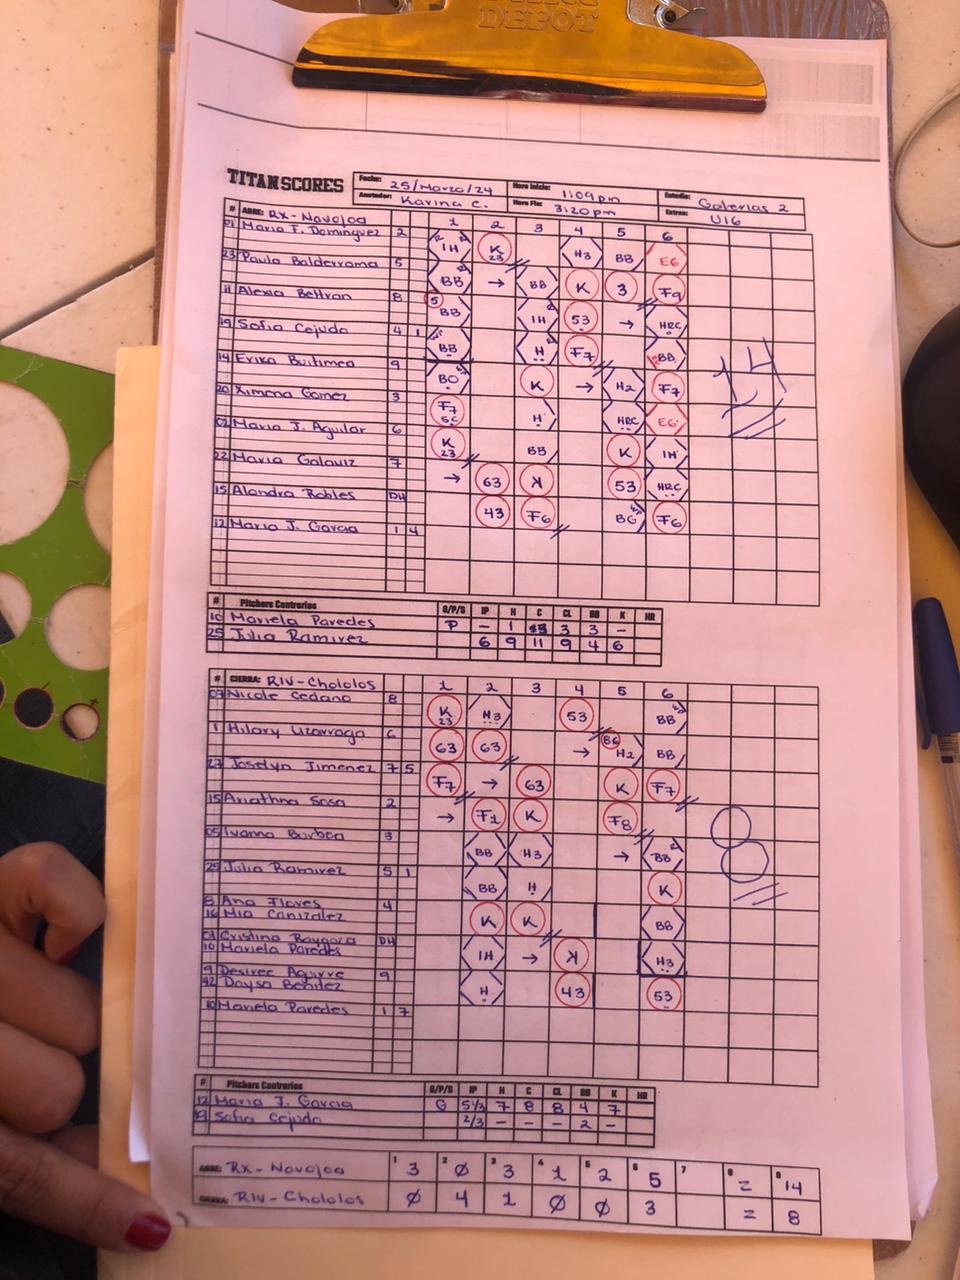 DEPOT
TITAN SCORES
Fecha: 25/Marzo/24 Hora Inicio: 1:09pm Estadio: Galerias 2
Anotador: Karina C. Hora Fin: 3:20pm Extras: U16
# ABRE: RX-Navojoa 1 2 3 4 5 6
01 Maria F. Dominguez 2 1H K 23 H3 BB E6
23 Paula Balderrama 5 BB → BB K 3 F9
11 Alexia Beltran 8 5 BB 1H 53 → HRC
19 Sofia Cejudo 4 1 BB H F7 BB
14 Erika Buitimea 9 BO K → H2 F7
20 Ximena Gomez 3 F7 SC H HRC E6
02 Maria J. Aguilar 6 K 23 BB K 1H
22 Maria Galaviz 7 → 63 K 53 HRC
15 Alondra Robles DH 43 F6 BG F6
12 Maria J. Garcia 1 4
14
# Pitchers Contrarios G/P/S IP H C CL BB K HR
10 Mariela Paredes P - 1 3 3 3 -
25 Julia Ramirez 6 9 11 9 4 6
# CIERRA: RIV-Chololos 1 2 3 4 5 6
07 Nicole Cedano 8 K 23 H3 53 BB
1 Hilary Uzarraga 6 63 63 → BG H2 BB
27 Joselyn Jimenez 7 5 F7 → 63 K F7
15 Ariathna Sosa 2 → F1 K F8
05 Ivanna Burboa 3 BB H3 → BB
25 Julia Ramirez 5 1 BB H K
8 Ana Flores 4 K K BB
16 Mia Canizalez
01 Cristina Raygoza DH 1H → K H3
10 Mariela Paredes
9 Desiree Aguirre 9 H 43 53
42 Daysa Benitez
10 Mariela Paredes 1 7
8
# Pitchers Contrarios G/P/S IP H C CL BB K HR
12 Maria J. Garcia G 5 1/3 7 8 8 4 7
19 Sofia Cejudo 2/3 - - - 2 -
ABRE: RX-Navojoa 1 3 2 Ø 3 3 4 1 5 2 6 5 7 8 = 9 14
CIERRA: RIV-Chololos Ø 4 1 Ø Ø 3 = 8